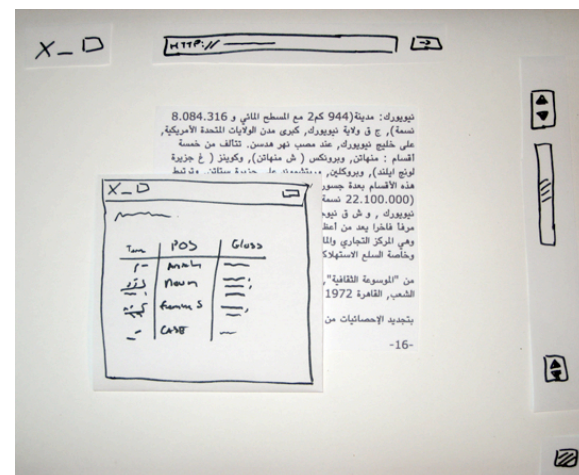 X_
HTTP://
نيويورك: مدينة(944 كم2 مع المسطح المائي و 8.084.316
نسمة), ج ق ولاية نيويورك, كبرى مدن الولايات المتحدة الأمريكية,
على خليج نيويورك, عند مصب نهر هدسن. تتألف من خمسة
أقسام : منهاتن, وبرونكس ( ش منهاتن), وكوينز ( غ جزيرة
لونج ايلند), وبروكلين, وريتشموند على جزيرة ستاتن. وترتبط
هذه الأقسام بعدة جسور
(22.100.000 نسمة
نيويورك , و ش ق
مرفأ فاخرا يعد من
وهي المركز التجاري
وخاصة السلع
من "الموسوعة الثقافية",
الشعب, القاهرة 1972
بتجديد الإحصائيات من
-16-
X_
POS Gloss
noun
case